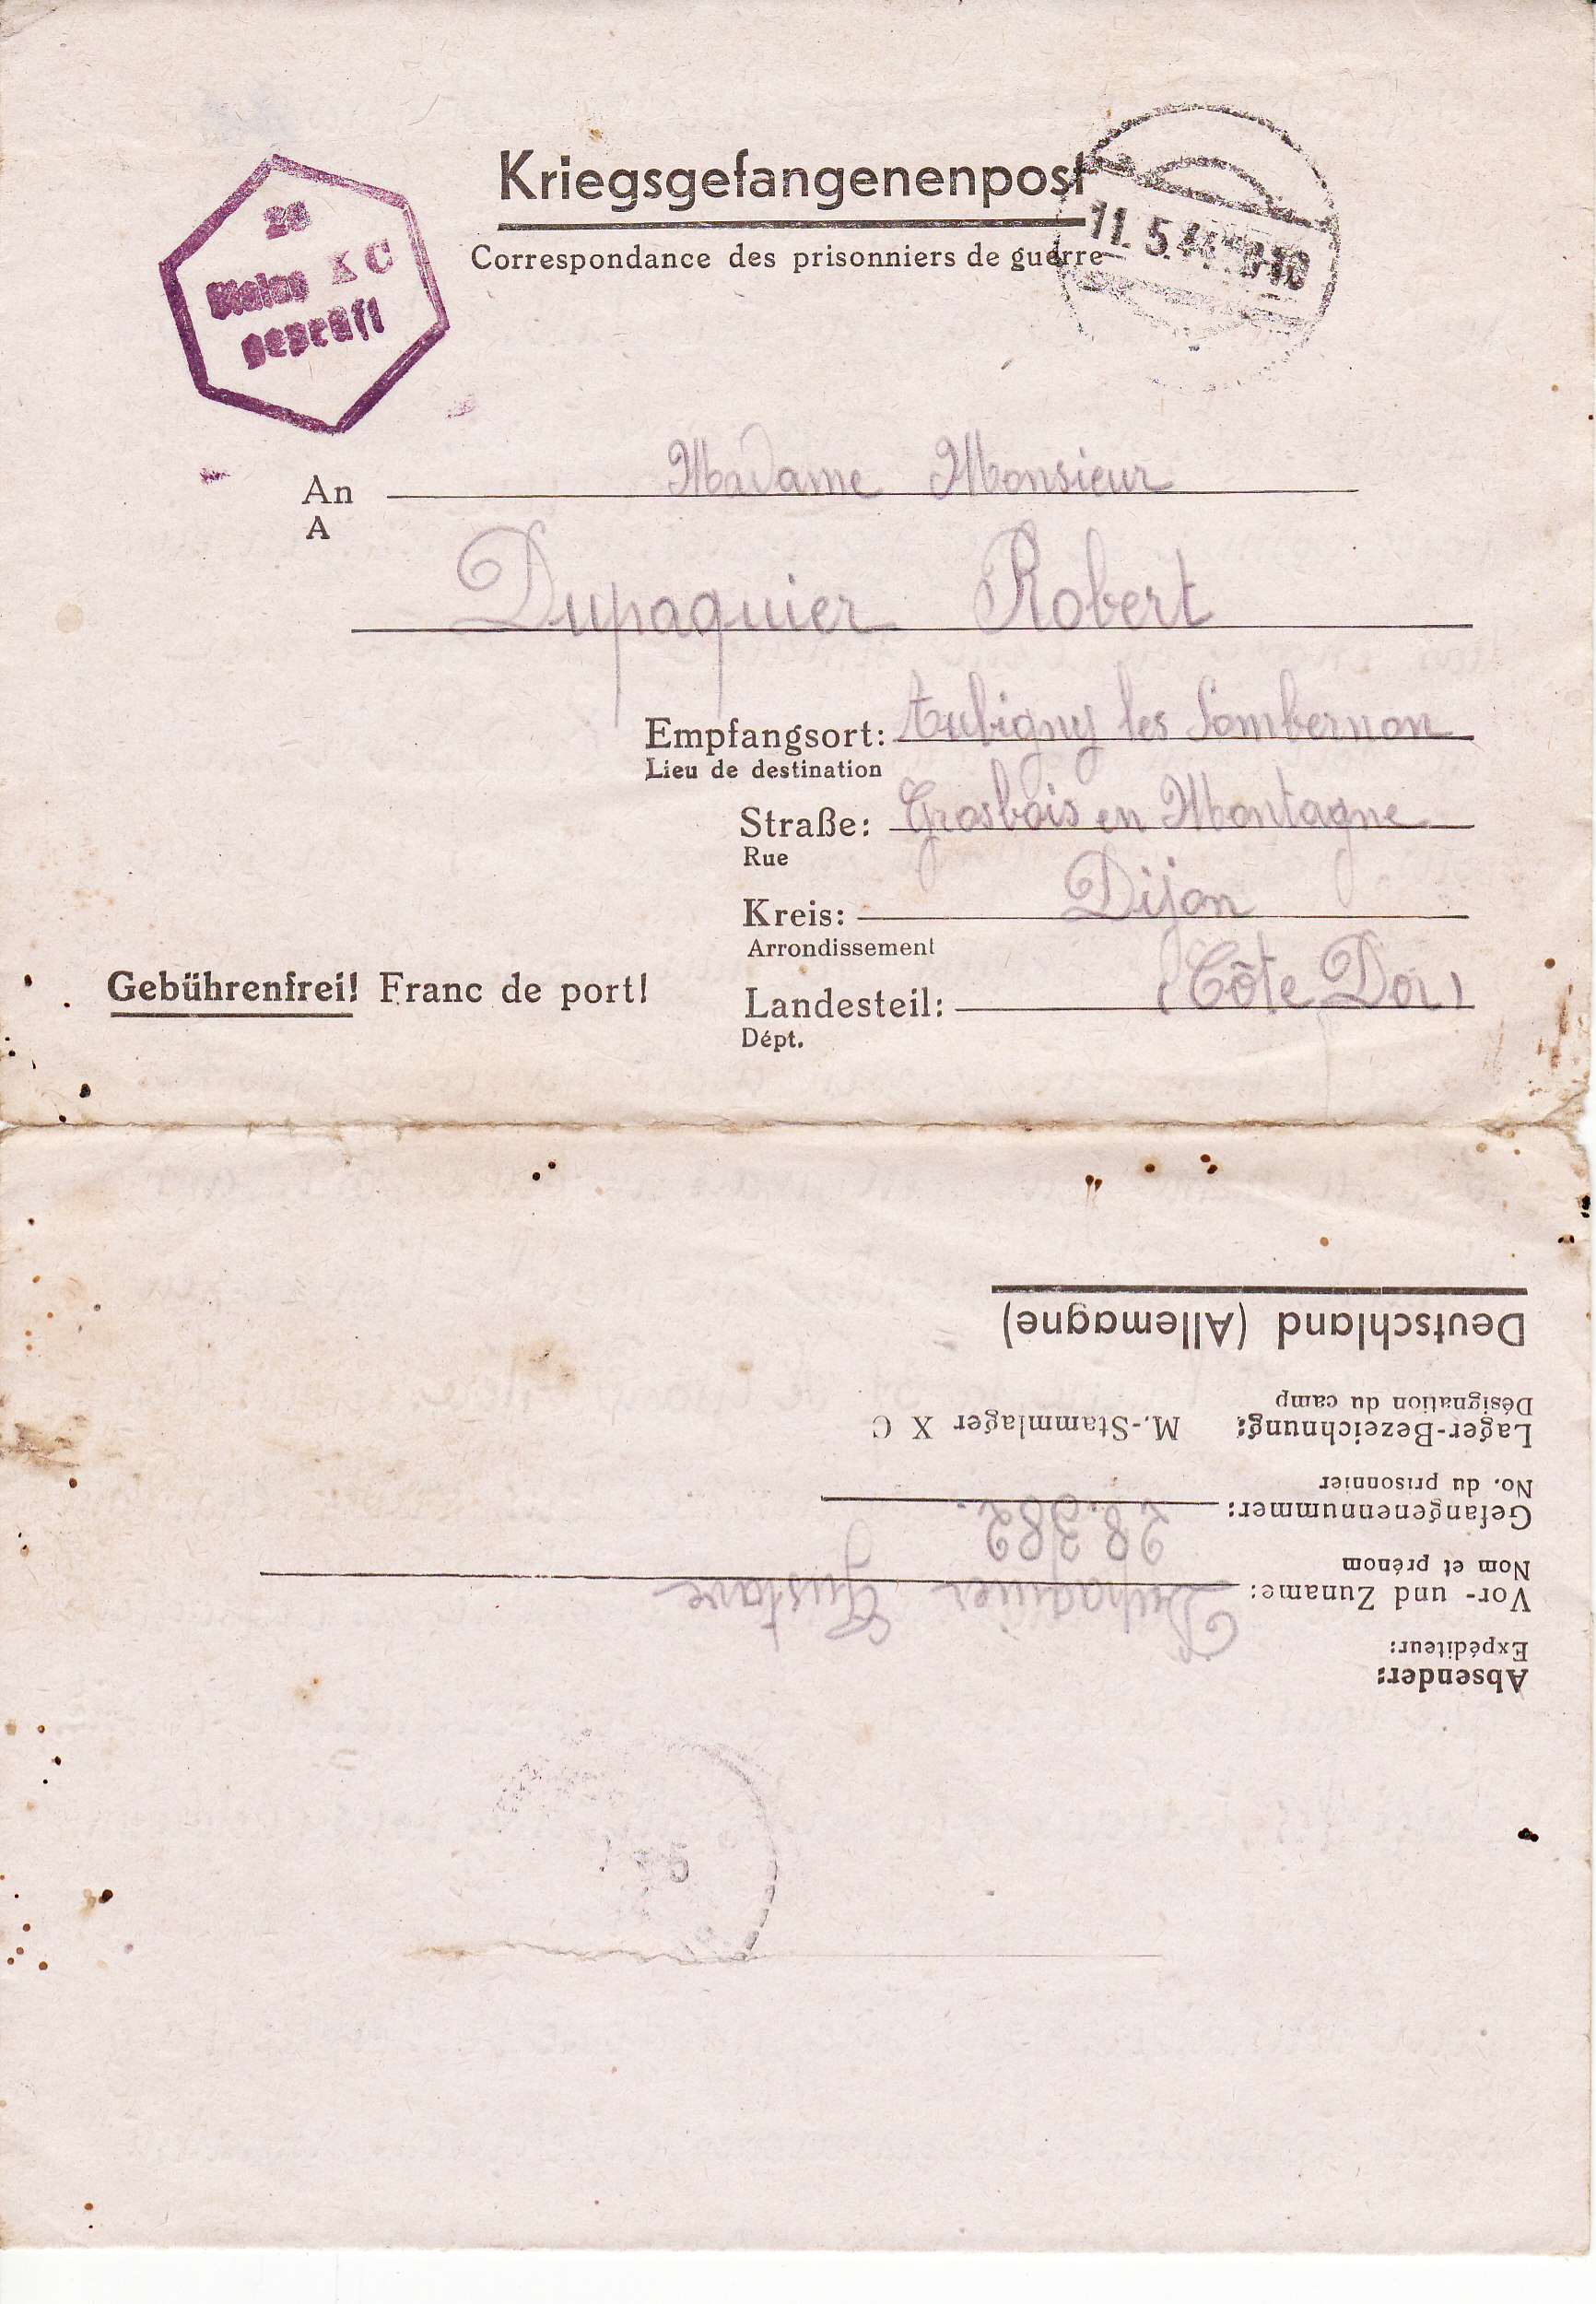 Kriegsgefangenenpost
Correspondance des prisonniers de guerre
Stalag X C
geprüft
11. 5. 44
An Madame Monsieur
A
Dupaquier Robert
Empfangsort: Aubigny les Sombernon
Lieu de destination
Straße: Grosbois en Montagne
Rue
Kreis: Dijon
Arrondissement
Gebührenfrei! Franc de port!
Landesteil: (Côte Dor)
Dépt.
Absender:
Expéditeur:
Vor- und Zuname: Dupaquier Gustave
Nom et prénom
Gefangenennummer: 28.382.
No. du prisonnier
Lager-Bezeichnung: M.-Stammlager X C
Désignation du camp
Deutschland (Allemagne)